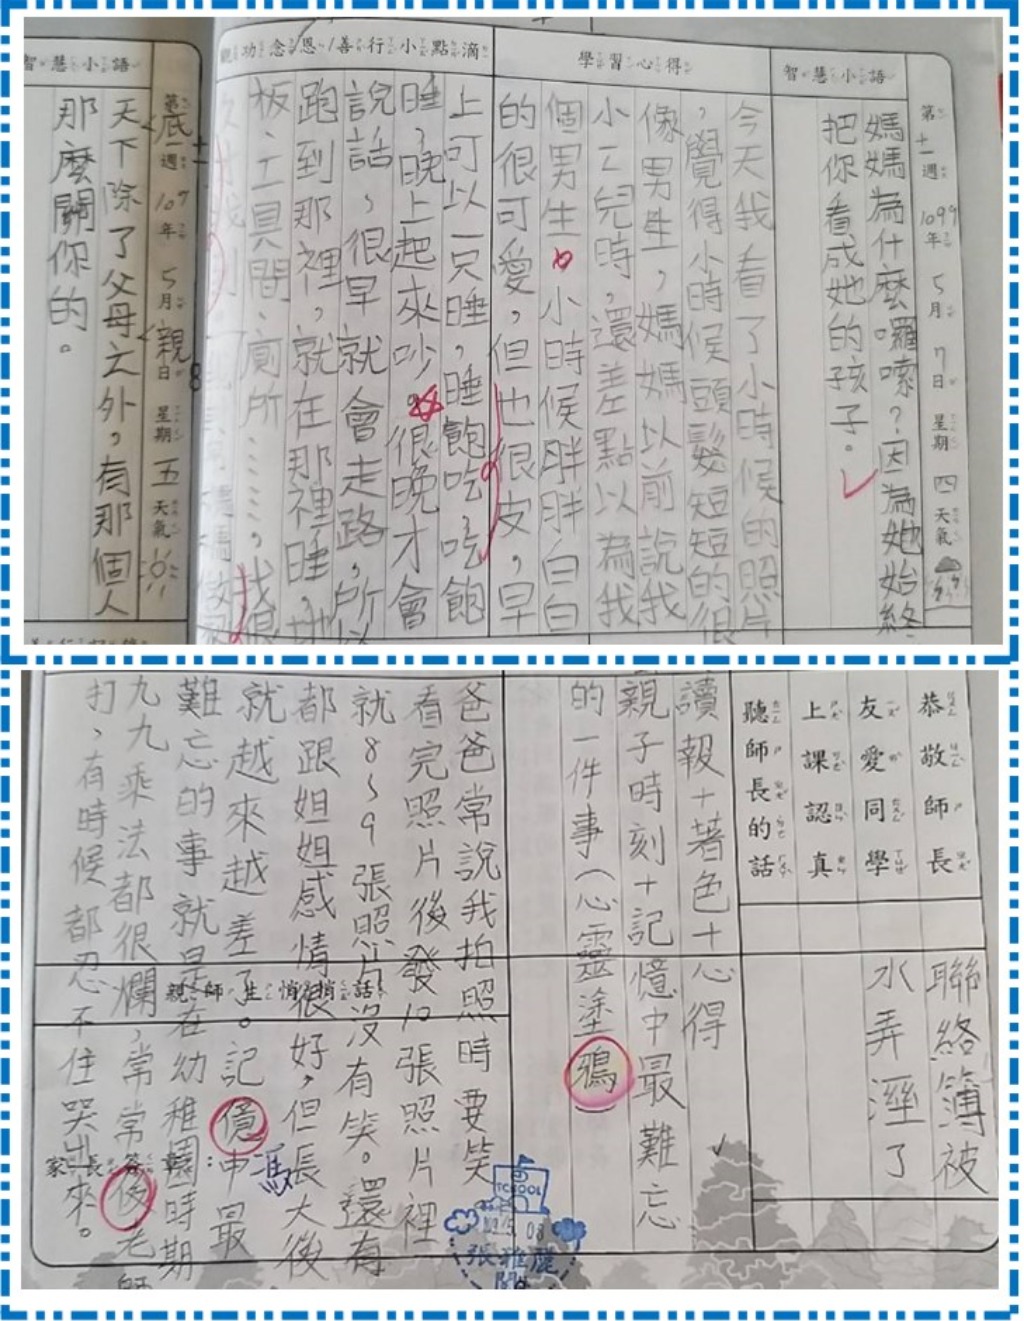 智慧小語
第十一週 109年5月7日 星期四 天氣
媽媽為什麼囉嗦？因為她始終
把你看成她的孩子。
學習心得
今天我看了小時候的照片
，覺得小時候頭髮短短的很
像男生，媽媽以前說我
小ㄥ兒時，還差點以為我
個男生。小時候胖胖白白
的很可愛，但也很皮，早
功念恩/善行小點滴
上可以一只睡，睡飽吃、吃飽
睡，晚上起來吵。很晚才會
說話、很早就會走路，所以
跑到那裡，就在那裡睡，地
板、工具間、廁所……，我很
智慧小語
第十一週 109年5月8日 星期五 天氣
天下除了父母之外，有那個人
那麼關你的。
恭敬師長
友愛同學
上課認真
聽師長的話
聯絡簿被
水弄溼了
讀報+著色+心得
親子時刻+記憶中最難忘
的一件事(心靈塗鴉)
爸爸常說我拍照時要笑
看完照片後發10張照片裡
就8~9張照片沒有笑。還有
都跟姐姐感情很好，但長大後
就越來越差了。記憶中最
難忘的事就是在幼稚園時期
九九乘法都很爛，常常後老師
打，有時候都忍不住哭出來。
親師生悄悄話
家長簽章：
馮
SCHOOL
張雅麗